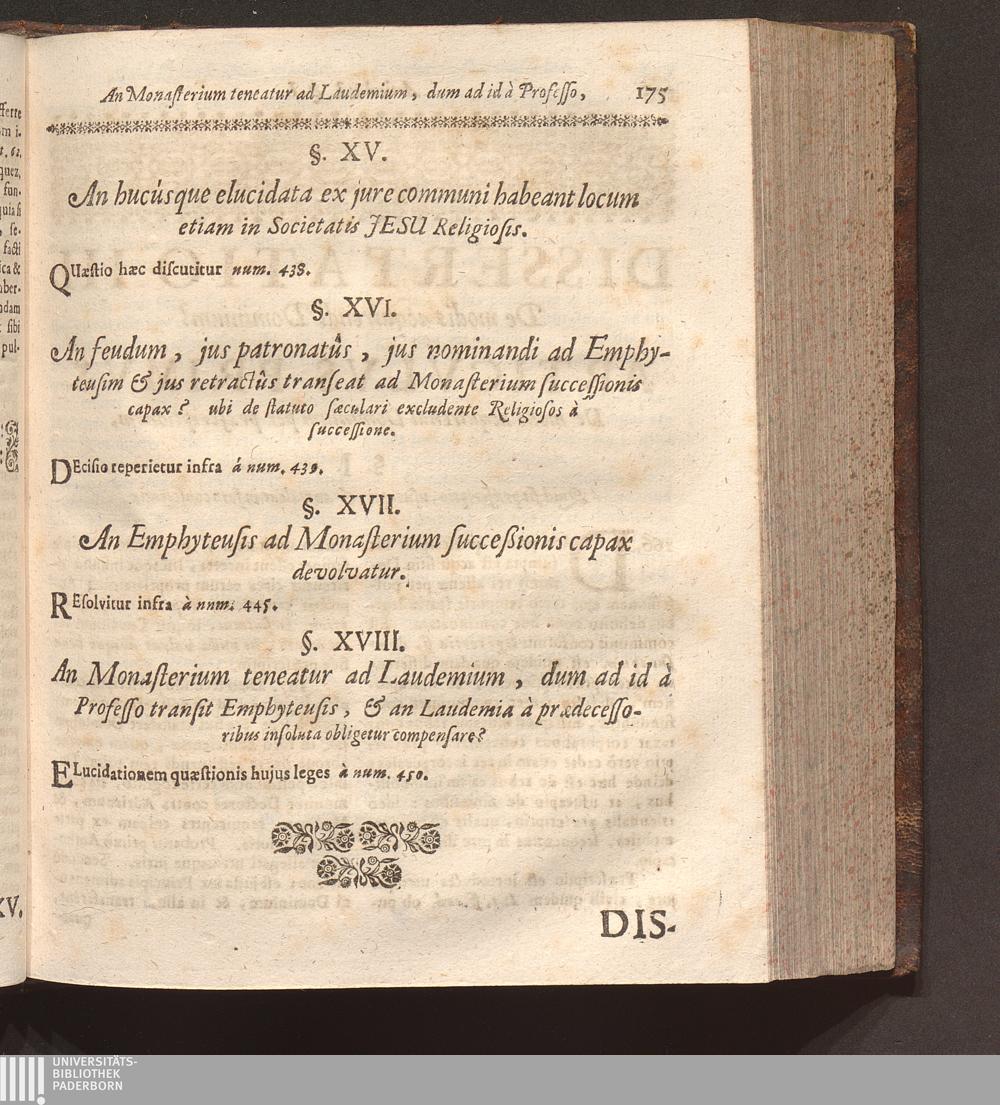 An Monaſterium teneatur ad Laudemium, dum ad id à Profeſſo, 175
§. XV.
An hucúsque elucidata ex jure communi habeant locum
etiam in Societatis JESU Religioſis.
QUæſtio hæc diſcutitur num. 438.
§. XVI.
An feudum, jus patronatûs, jus nominandi ad Emphy-
teuſim & jus retractûs tranſeat ad Monaſterium ſucceſſionis
capax? ubi de ſtatuto ſæculari excludente Religioſos à
ſucceſſione.
DEciſio reperietur infra á num. 439.
§. XVII.
An Emphyteuſis ad Monaſterium ſucceßionis capax
devolvatur.
REſolvitur infra à nnm. 445.
§. XVIII.
An Monaſterium teneatur ad Laudemium, dum ad id à
Profeſſo tranſit Emphyteuſis, & an Laudemia à prædeceſſo-
ribus inſoluta obligetur compenſare?
ELucidationem quæſtionis hujus leges à num. 450.
DIS-
UNIVERSITÄTS-
BIBLIOTHEK
PADERBORN